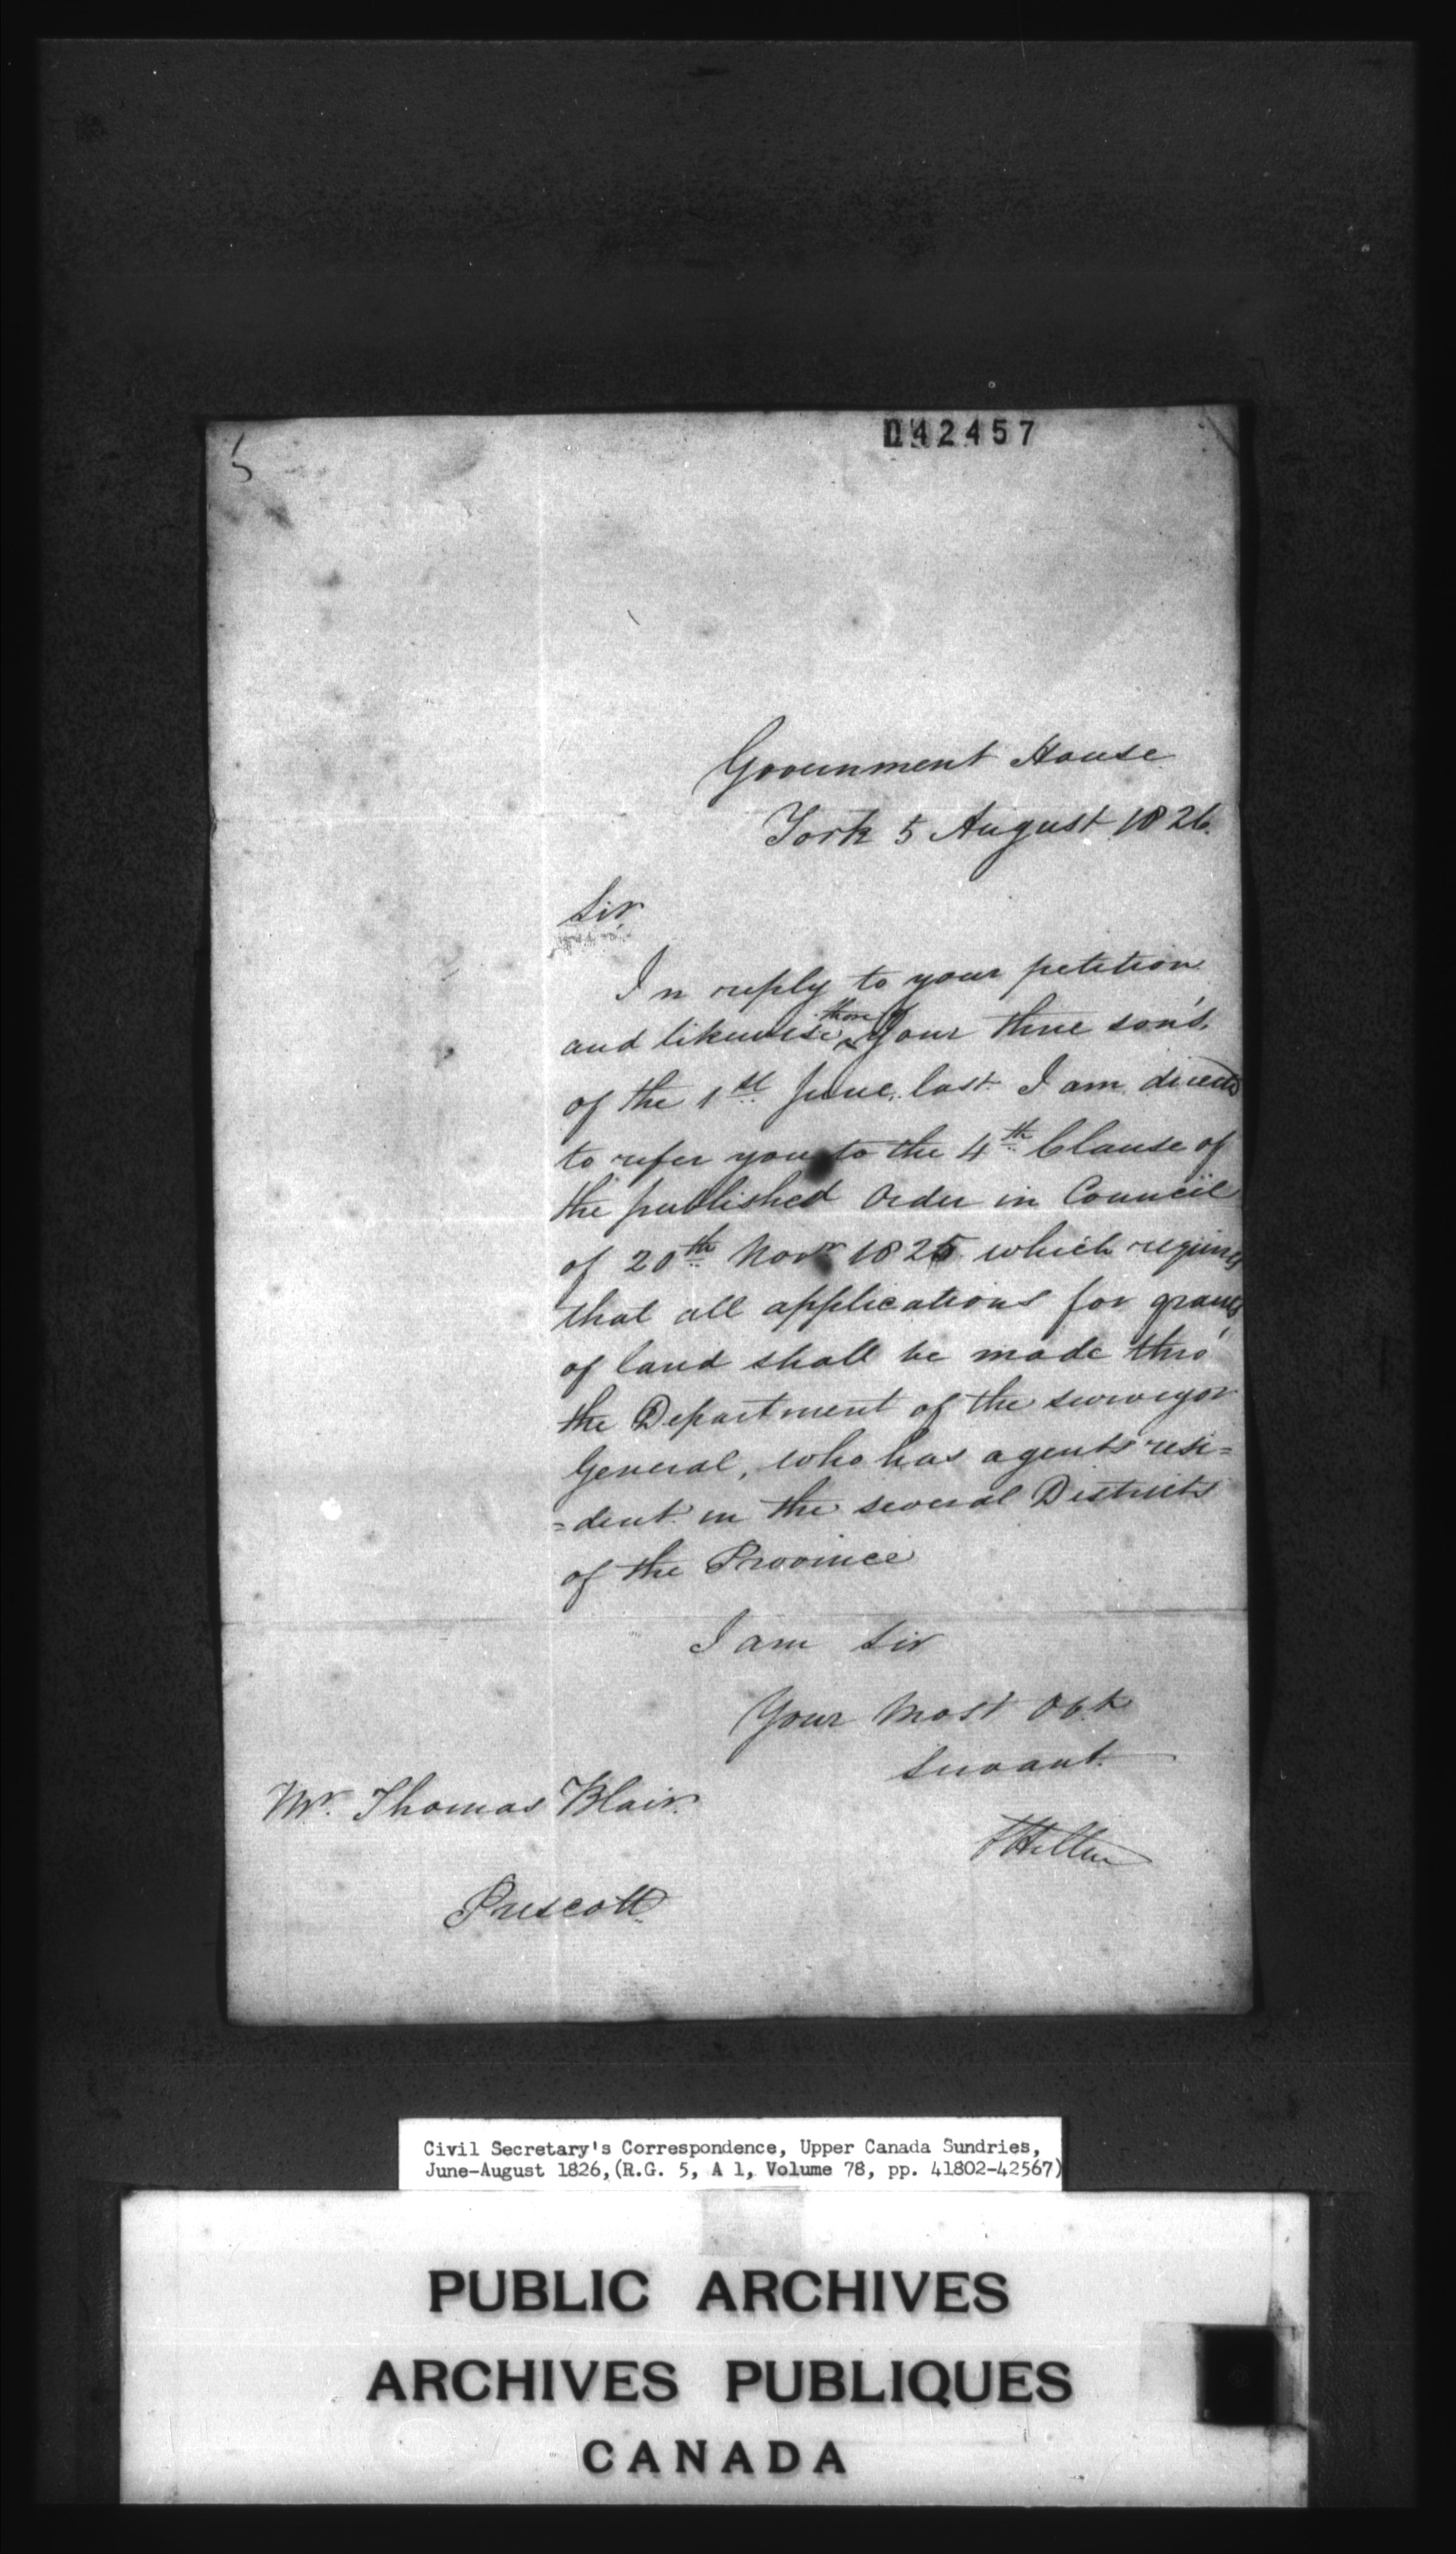 5
042457
Government House
York 5 August 1826.
Sir
In reply to your petition
and likewise those of your three son's
of the 1st June last I am directed
to refer you to the 4th Clause of
the published Order in Council
of 20th Novr 1825 which requires
that all applications for grants
of land shall be made thro'
the Department of the surveyor
General, who has agents resi=
=dent in the several Districts
of the Province
I am Sir
Your Most Obt
Servant.
Mr. Thomas Blair.
Prescott
Civil Secretary's Correspondence, Upper Canada Sundries,
June-August 1826, (R.G. 5, A 1, Volume 78, pp. 41802-42567)
PUBLIC ARCHIVES
ARCHIVES PUBLIQUES
CANADA